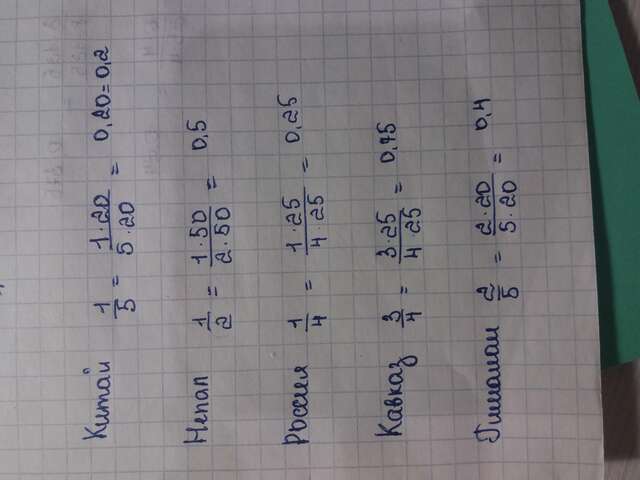 Китай 1/5 = 1·20/5·20 = 0,20=0,2
Непал 1/2 = 1·50/2·50 = 0,5
Россия 1/4 = 1·25/4·25 = 0,25
Кавказ 3/4 = 3·25/4·25 = 0,75
Гималаи 2/5 = 2·20/5·20 = 0,4